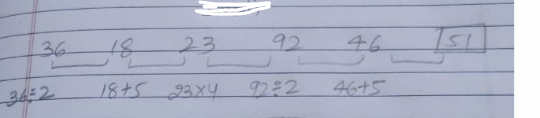 36 18 23 92 46 51
36÷2 18+5 23×4 92÷2 46+5